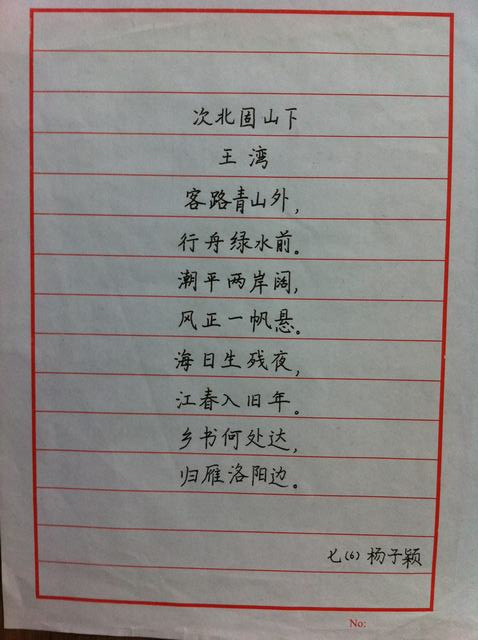 次北固山下
王湾
客路青山外,
行舟绿水前。
潮平两岸阔,
风正一帆悬。
海日生残夜,
江春入旧年。
乡书何处达,
归雁洛阳边。
七(6)杨子颖
No: